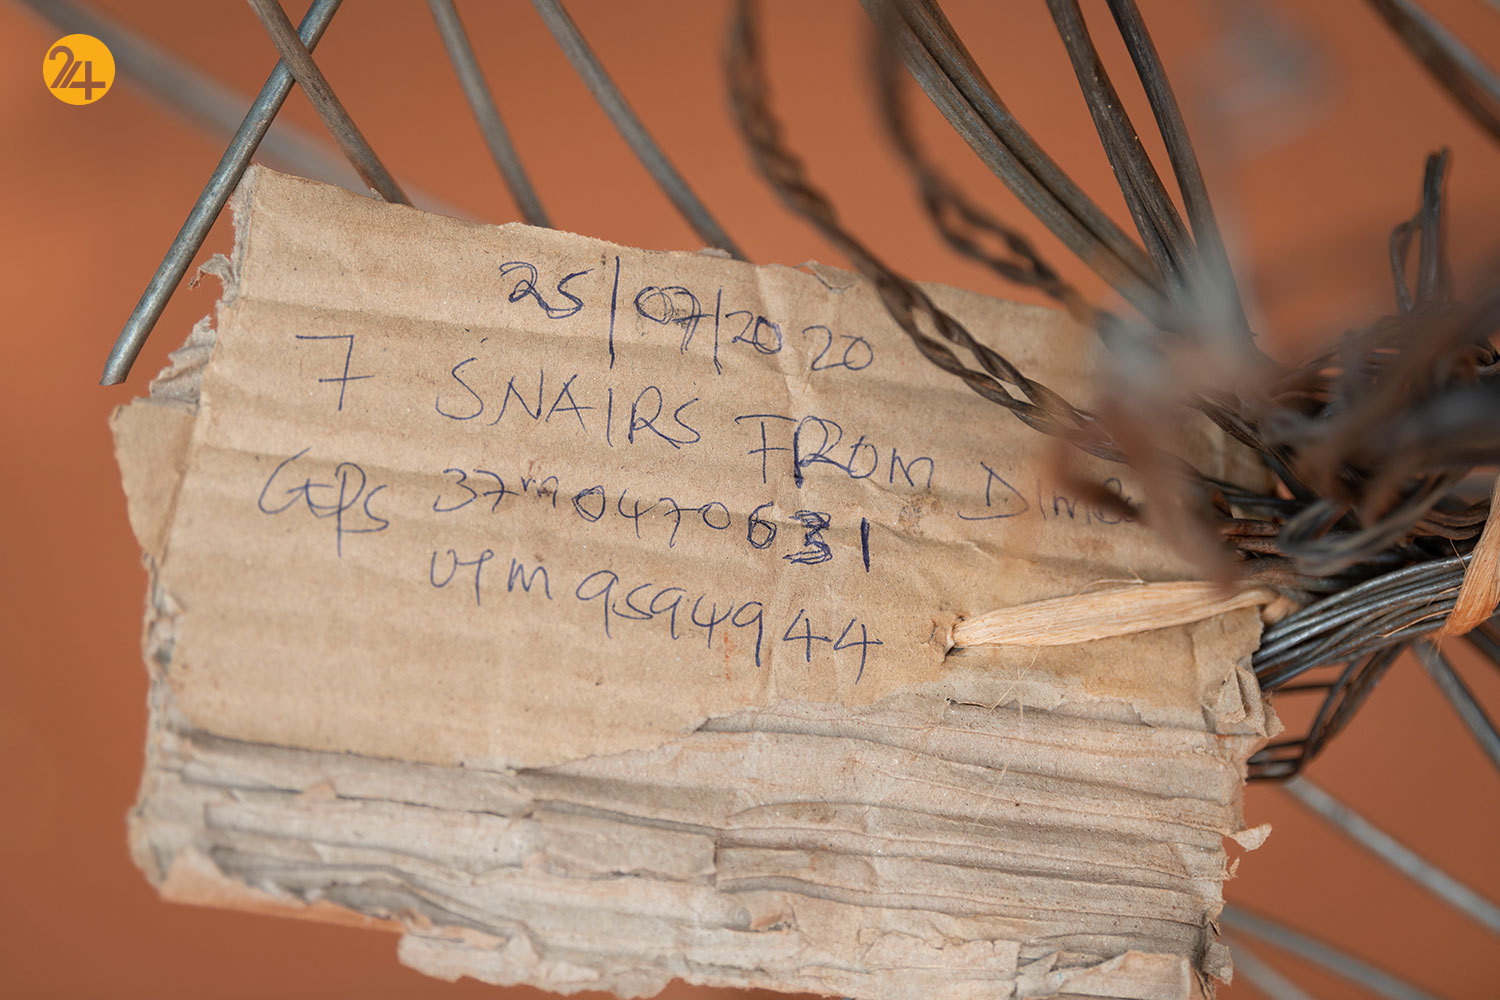 24
25/07/2020
7 SNAIRS FROM
GPS 37m 0470631
UTM 9594944